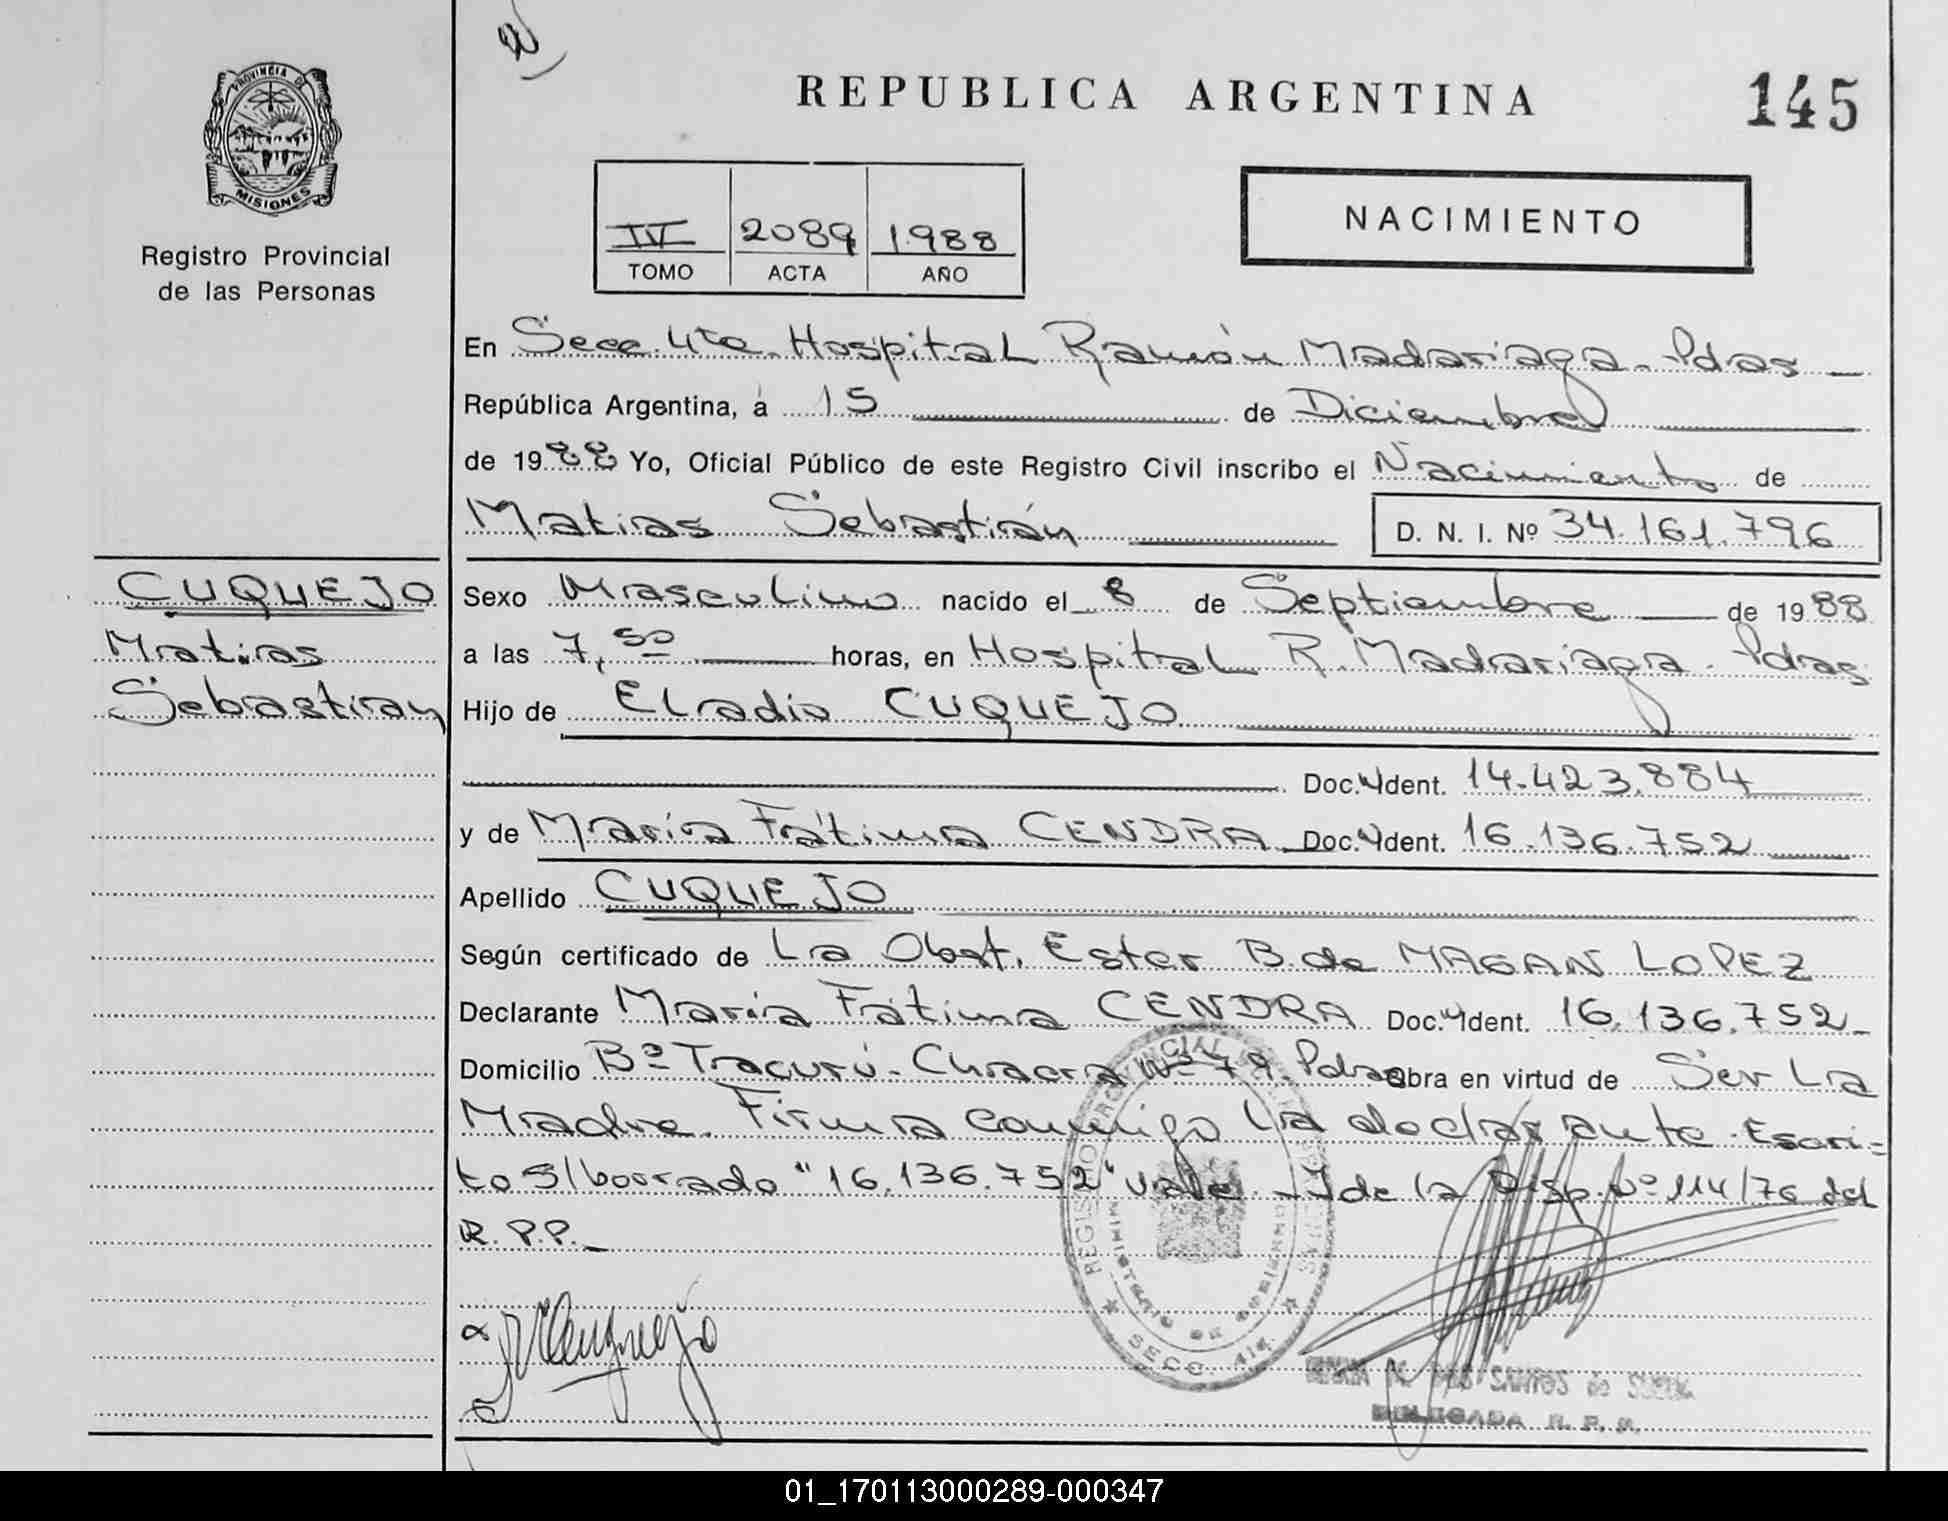 REPUBLICA ARGENTINA
145
PROVINCIA DE
MISIONES
Registro Provincial
de las Personas
IV 2089 1988
TOMO ACTA AÑO
NACIMIENTO
En Secc. 4ta. Hospital Ramón Madariaga - Pdas
República Argentina, á 15 de Diciembre
de 1988 Yo, Oficial Público de este Registro Civil inscribo el Nacimiento de
Matias Sebastián
D. N. I. Nº 34.161.796
CUQUEJO
Matias
Sebastian
Sexo Masculino nacido el 8 de Septiembre de 1988
a las 7,50 horas, en Hospital R. Madariaga - Pdas
Hijo de Eladio CUQUEJO
Doc. Ident. 14.423.884
y de María Fátima CENDRA Doc. Ident. 16.136.752
Apellido CUQUEJO
Según certificado de La Obst. Ester B. de MAGAN LOPEZ
Declarante María Fátima CENDRA Doc. Ident. 16.136.752
Domicilio Bº Tacurú - Chacra Nº 79 - Pdas Obra en virtud de Ser La
Madre. Firma conmigo la declarante. Escri-
to S/borrado "16.136.752" vale. de la Disp. Nº 114/76 del
R.P.P.
REGISTRO PROVINCIAL DE LAS PERSONAS
MINISTERIO DE GOBIERNO
SECC. 4ta.
DOS SANTOS de
DELEGADA R. P. P.
01_170113000289-000347